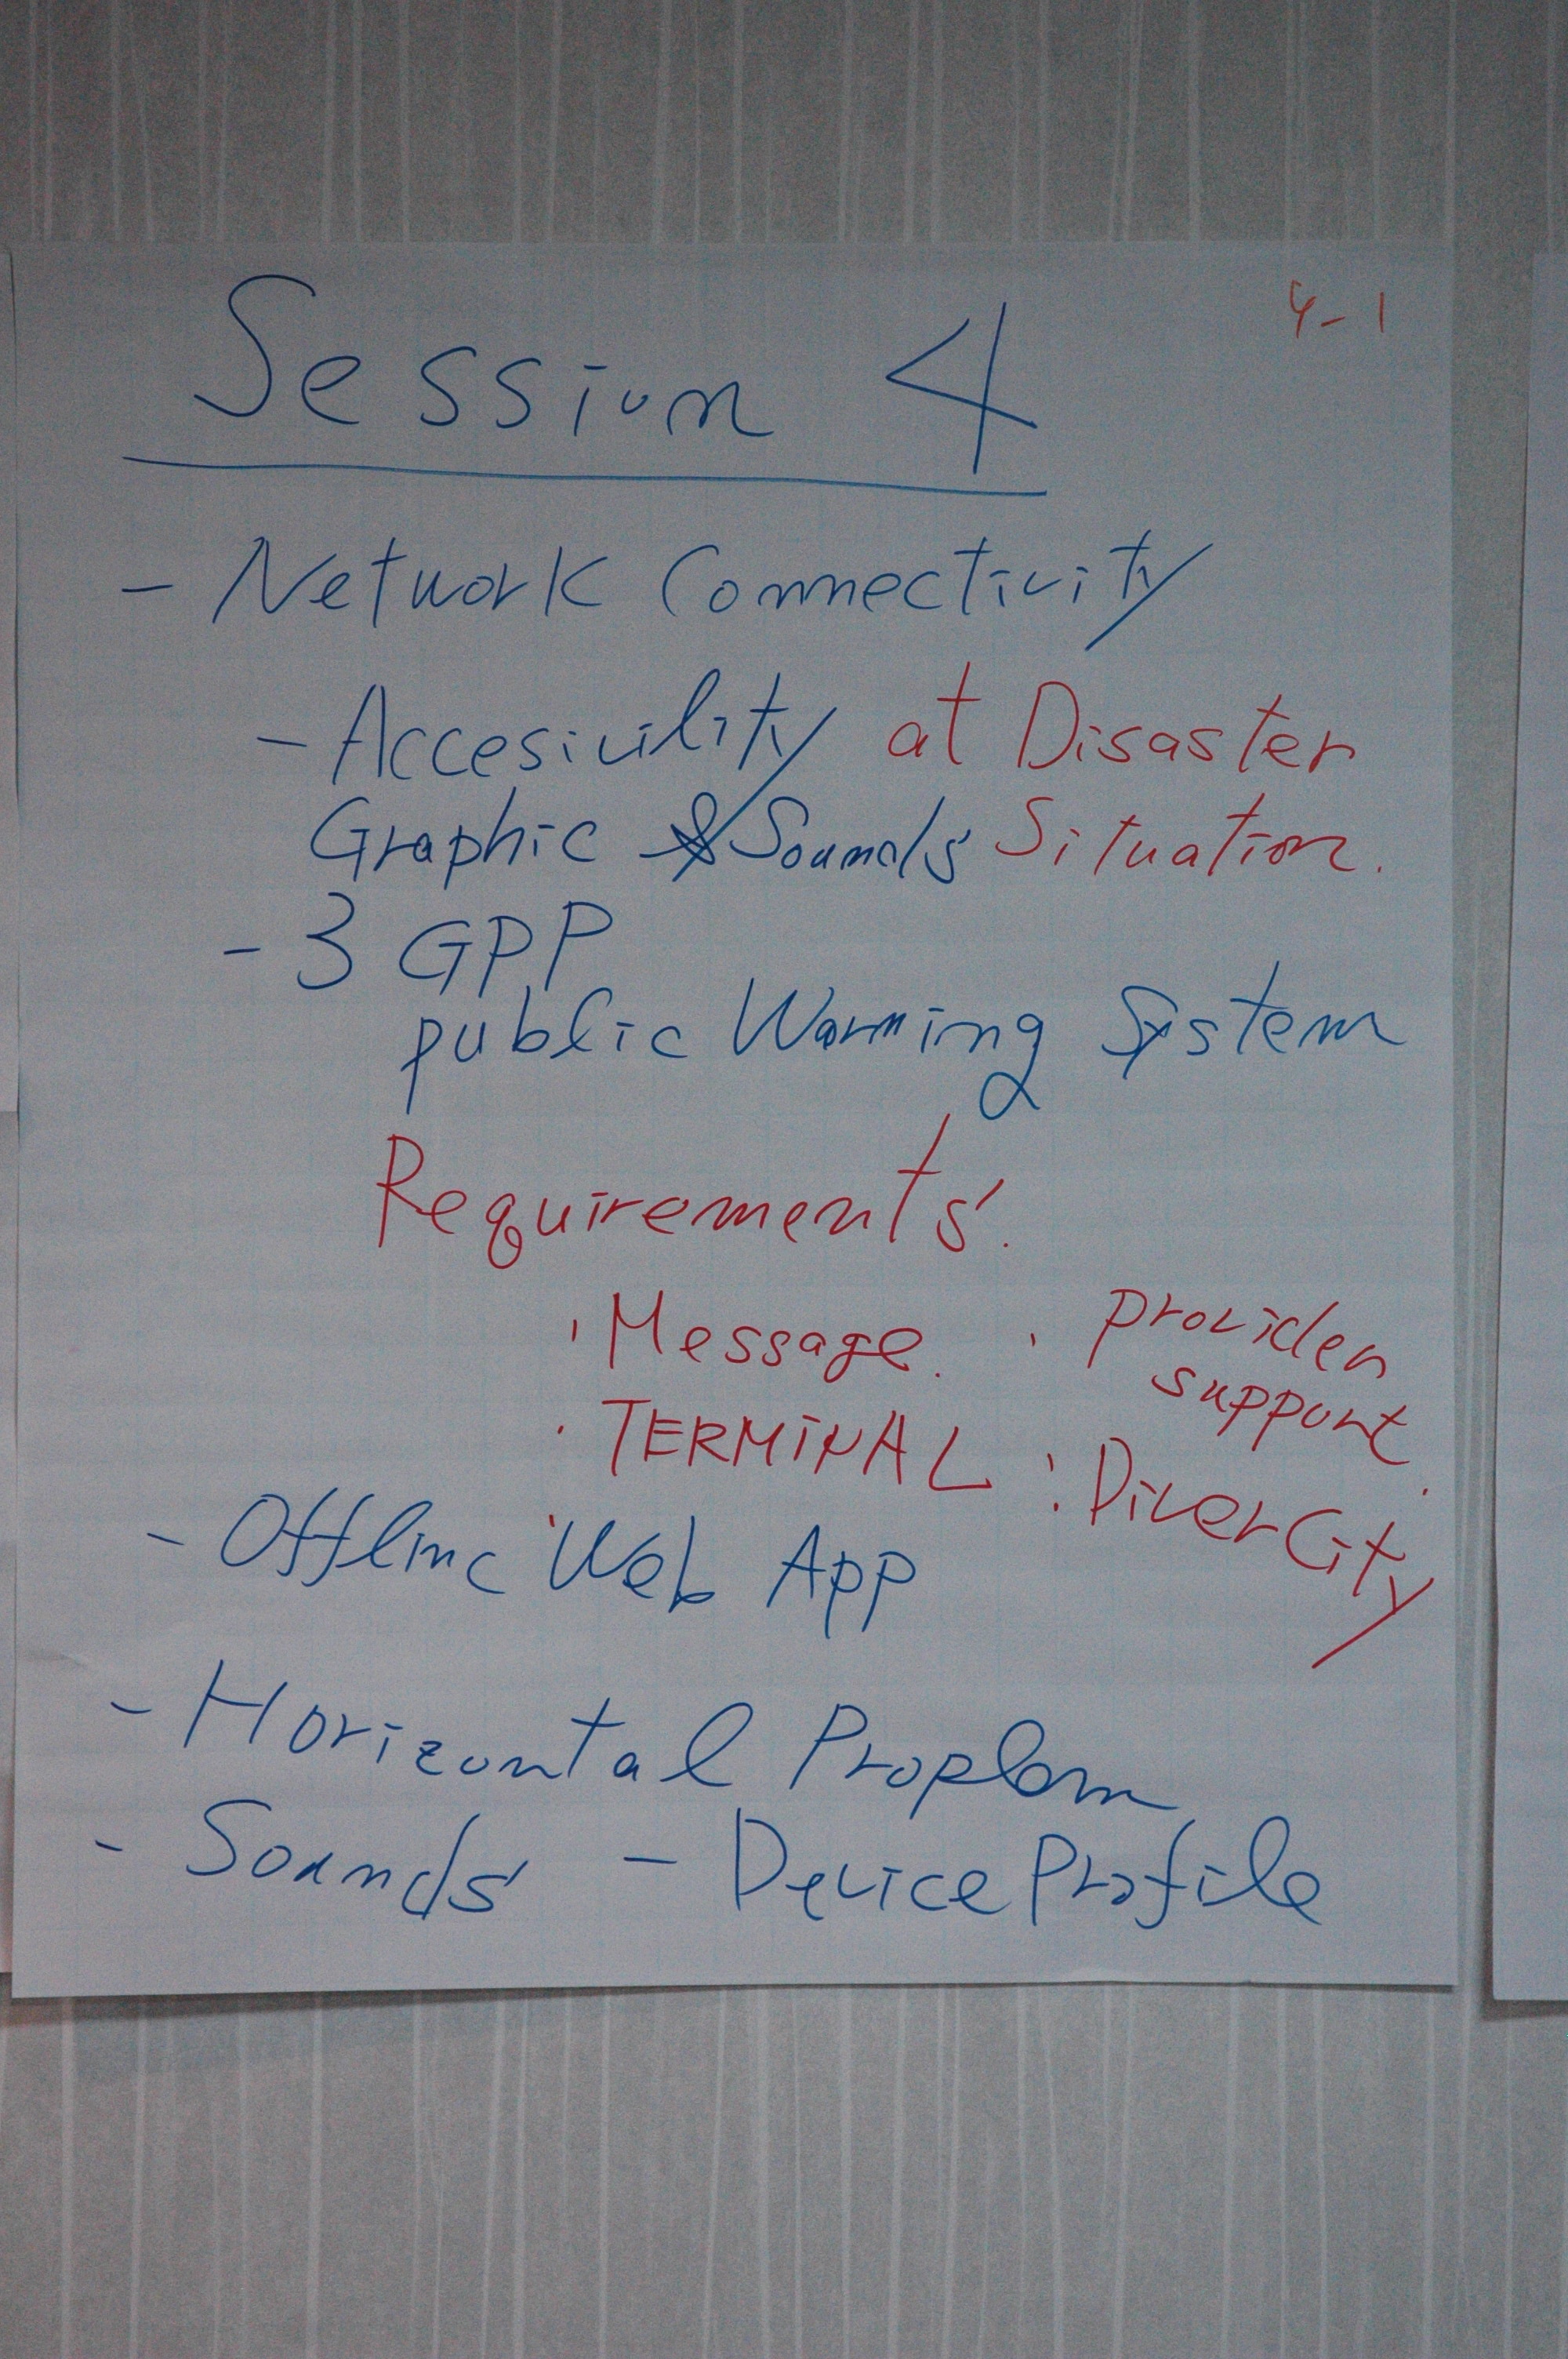 4-1
Session 4
- Network Connectivity
- Accesivility at Disaster
Graphic & Sounds Situation.
- 3GPP
public Warning System
Requirements.
· Message. · provider
support.
· TERMINAL : DiverCity
- Offline Web App
- Horizontal Proplem
- Sounds - Device Profile